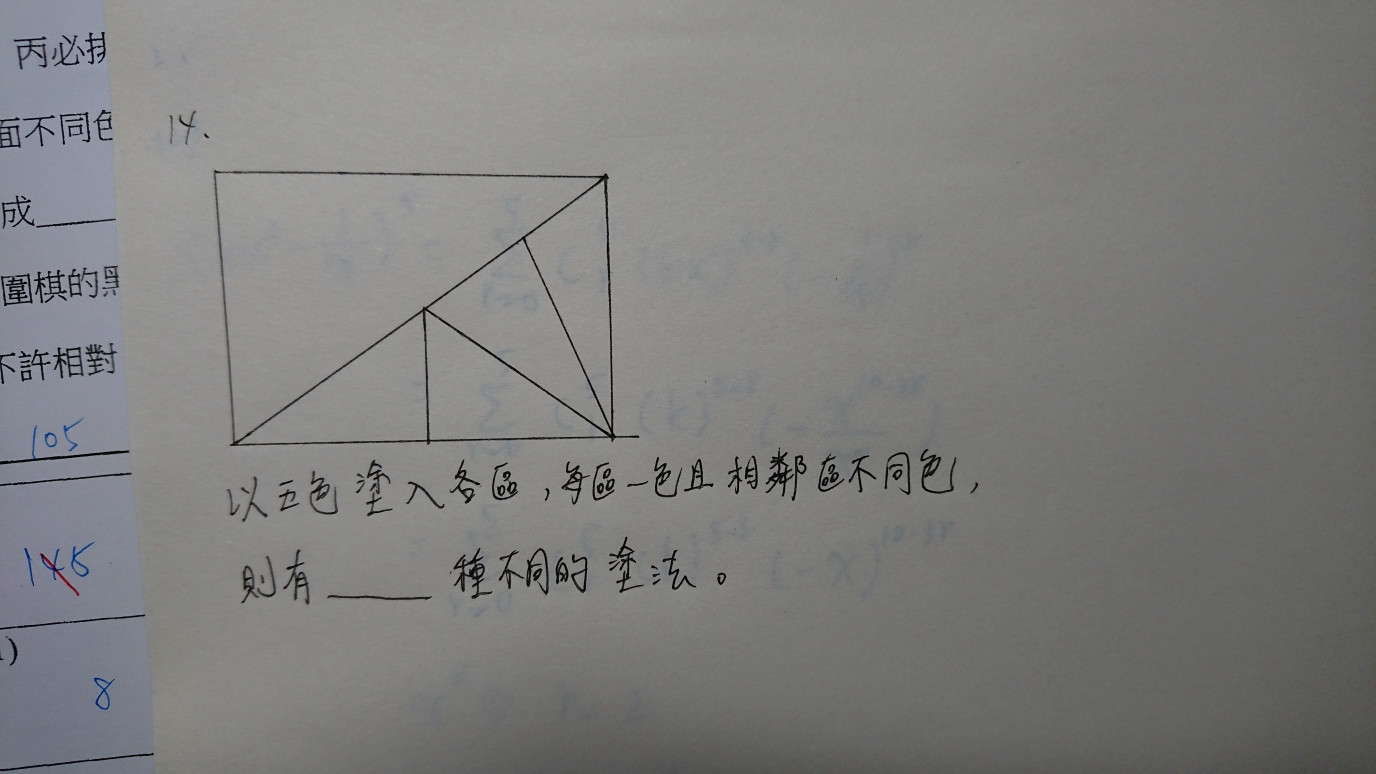 丙必排
面不同色
成
圍棋的黑
不許相對
105
145
)
8
14.
以五色塗入各區,每區一色且相鄰區不同色,
則有_____種不同的塗法。